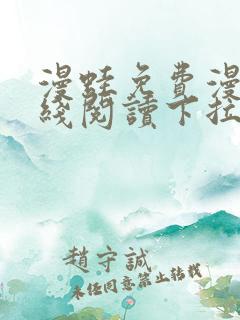 漫蛙免費漫
綫閱讀下拉
趙守誠
未經同意禁止轉載